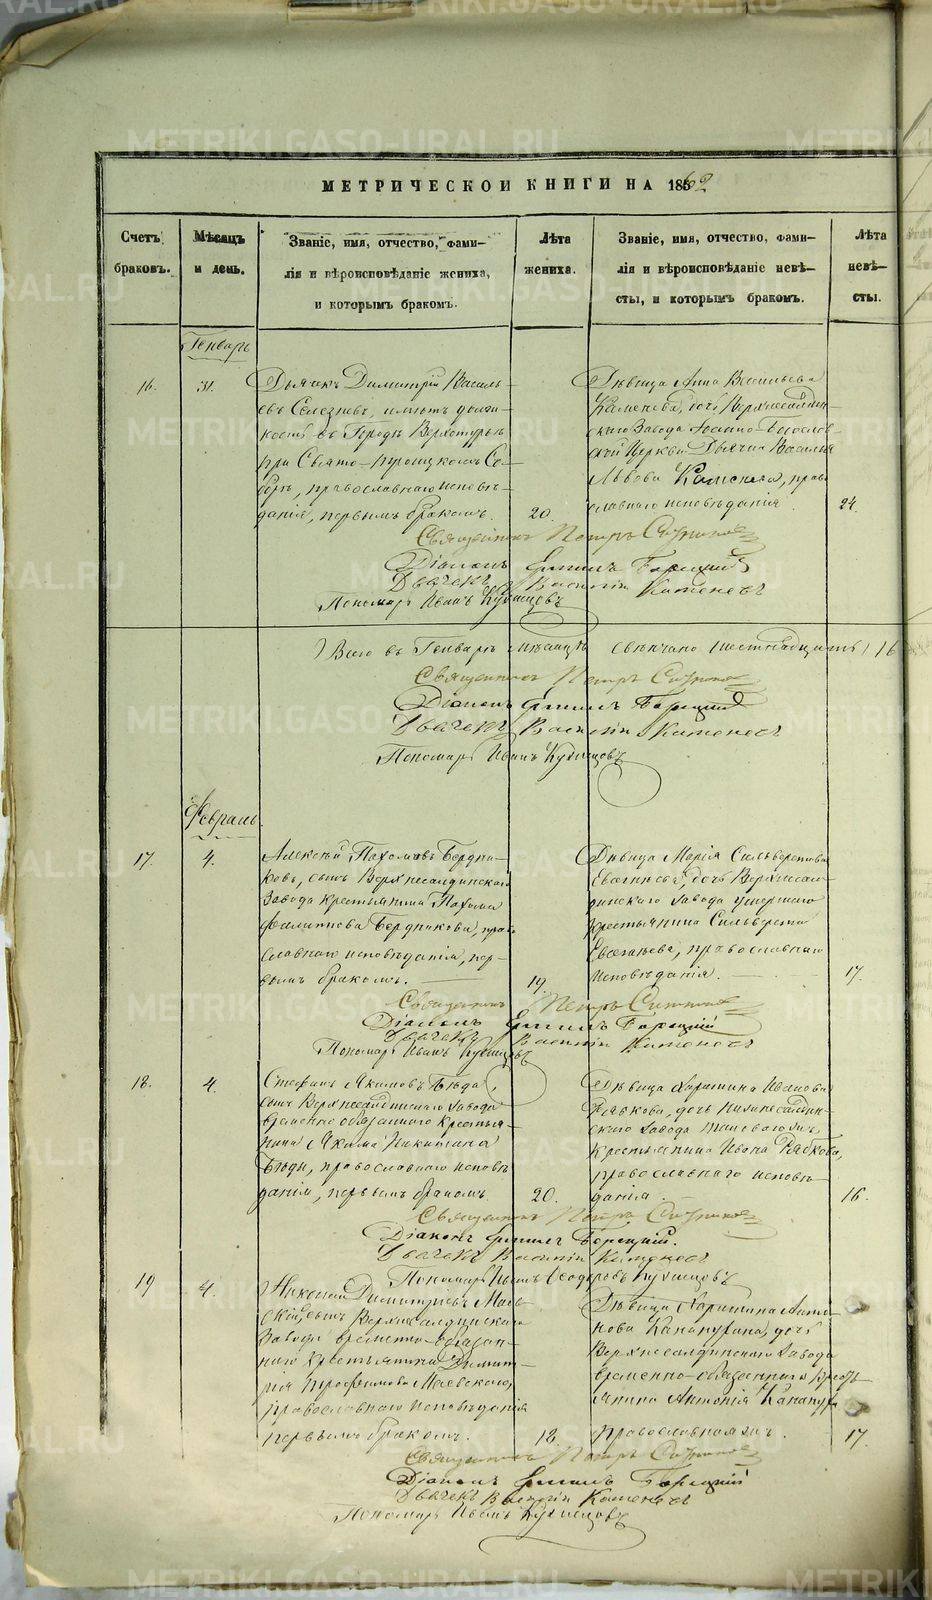 МЕТРИЧЕСКОЙ КНИГИ НА 1862
Счетъ браковъ.
Мѣсяцъ и день.
Званіе, имя, отчество, фами-
лія и вѣроисповѣданіе жениха,
и которымъ бракомъ.
Лѣта жениха.
Званіе, имя, отчество, фами-
лія и вѣроисповѣданіе невѣ-
сты, и которымъ бракомъ.
Лѣта невѣ-
сты.
Генварь
16.
31.
Дьячекъ Димитрій Василь-
евъ Селезневъ, имѣетъ долж-
ность въ Городѣ Верхотурьѣ
при Свято-Троицкомъ Со-
борѣ, православнаго исповѣ-
данія, первымъ бракомъ.
20.
Дѣвица Анна Васильева
Каменева, дочь Верхнесалдин-
скаго Завода Іоанно-Богослов-
ской Церкви Дьячка Василья
Львова Каменева, прав-
славнаго исповѣданія
24.
Священникъ Петръ
Діаконъ
Дьячекъ Василій Каменевъ
Пономарь Иванъ Кузнецовъ
Всего въ Генварѣ мѣсяцѣ свѣнчано шестнадцать 16
Священникъ Петръ
Діаконъ
Дьячекъ Василій Каменевъ
Пономарь Иванъ Кузнецовъ
Февраль
17.
4.
Алексѣй Пахомовъ Бердни-
ковъ, сынъ Верхнесалдинскаго
Завода крестьянина Пахома
Филиппова Бердникова, право-
славнаго исповѣданія, пер-
вымъ бракомъ.
19.
Дѣвица Марія Сильверстова
дочь Верхнесал-
динскаго Завода умершаго
крестьянина Сильверста
православнаго
исповѣданія.
17
Священникъ Петръ
Діаконъ
Дьячекъ Василій Каменевъ
Пономарь Иванъ Кузнецовъ
18.
4.
Стефанъ Якимовъ Бѣда,
сынъ Верхнесалдинскаго Завода
временно обязаннаго Крестья-
нина Якима Никитина
Бѣды, православнаго исповѣ
данія, первымъ бракомъ.
20.
Дѣвица Харитина Иванова
Рябкова, дочь Нижнесалдин-
скаго Завода
Крестьянина Ивана Рябкова,
православнаго исповѣ-
данія.
16.
Священникъ Петръ
Діаконъ
Дьячекъ Василій Каменевъ
Пономарь Иванъ Ѳеодоровъ Кузнецовъ
19
4.
Николай Димитріевъ Маев-
скій, сынъ Верхнесалдинскаго
Завода временно-обязан-
наго Крестьянина Димит-
рія Трофимова Маевскаго,
православнаго исповѣданія
первымъ бракомъ.
18.
Дѣвица Харитина Анто-
нова Канапугина, дочь
Верхнесалдинскаго Завода
временно-обязаннаго Кресть-
янина Антонія
Православнаго исп.
17.
Священникъ Петръ
Діаконъ
Дьячекъ Василій Каменевъ
Пономарь Иванъ Кузнецовъ
METRIKI.GASO-URAL.RU